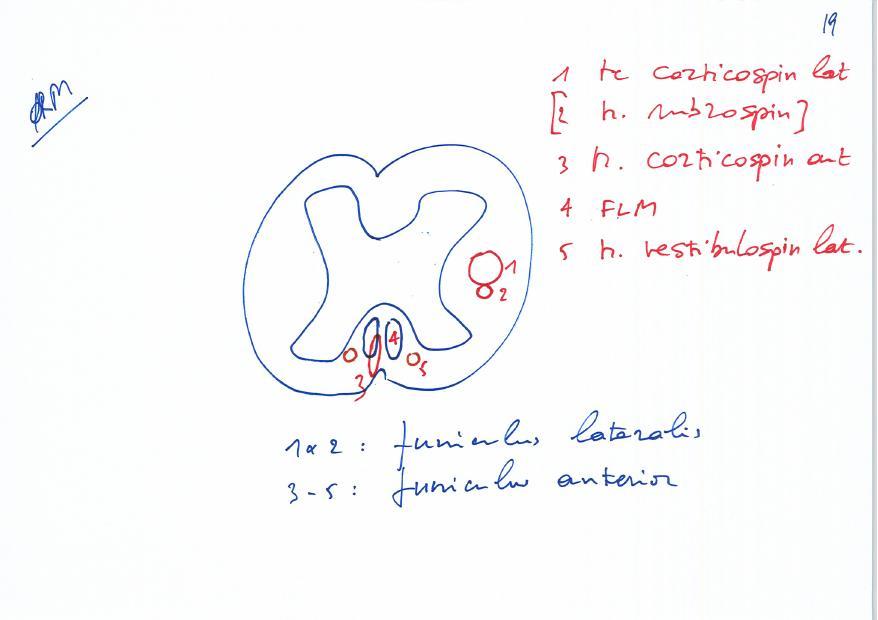 19
1 tr corticospin lat
[2 tr. rubrospin]
3 tr. corticospin ant
4 FLM
5 tr. vestibulospin lat.
1
2
4
5
3
1 & 2 : funiculus lateralis
3-5 : funiculus anterior